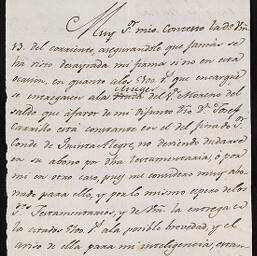 Muy S.r mio. Contexto la de Vm
13. del corriente, asegurandole que jamás se
ha visto desayrada mi firma si no en esta
ocasion, en quanto a los que encargué
se entregasen a la Muger del S.r Moreno del
saldo que á favor de mi difunto tio D.n Josef
Carrillo está constante en el del finado S.r
Conde de Quinta Alegre, no deviendo dudarse
en su abono por dha testamentaria, ó por
mi en otro caso, pues me considero muy abo-
nado para ello, y por lo mismo espero de los
S.res Testamentarios, y de Vm la entrega en
la citada á la posible brevedad, y el
aviso de ella para mi inteligencia,